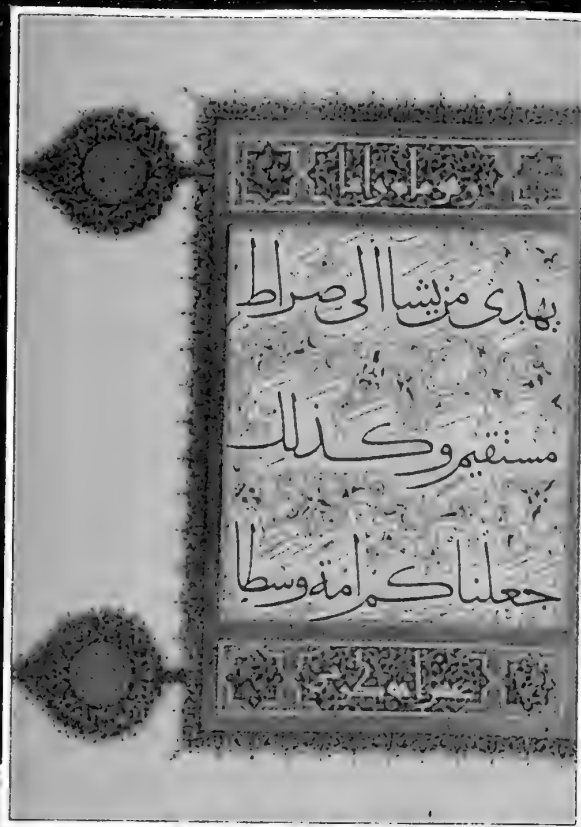 يهدى من يشاا الى صراط
مستقيم وكذلك
جعلناكم امة وسطا